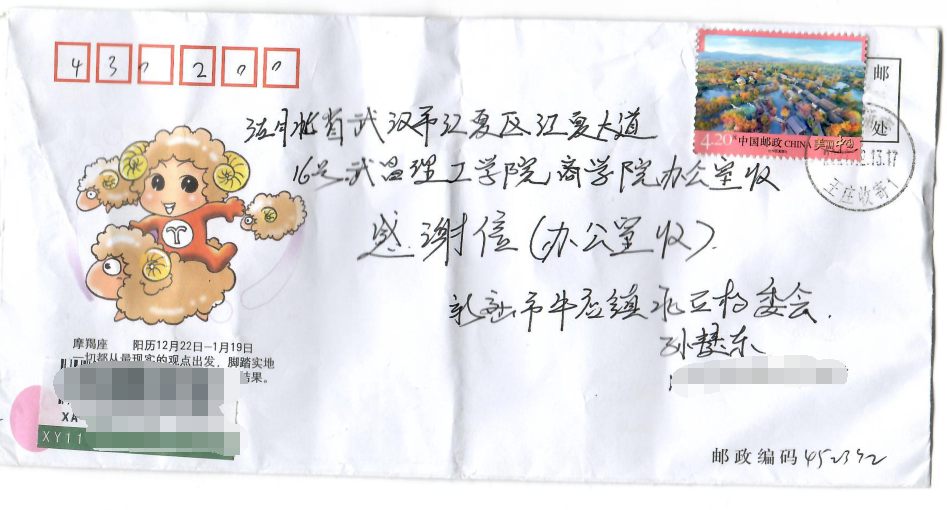 430200
湖北省武汉市江夏区江夏大道
16号武昌理工学院商学院办公室收
感谢信(办公室收).
市牛 镇 村委会.
孙慧东
4.20 中国邮政 CHINA 美丽中国
邮
处
13.17
王庄收寄1
摩羯座 阳历12月22日—1月19日
一切都从最现实的观点出发,脚踏实地
结果。
XA
XY11
邮政编码 452392